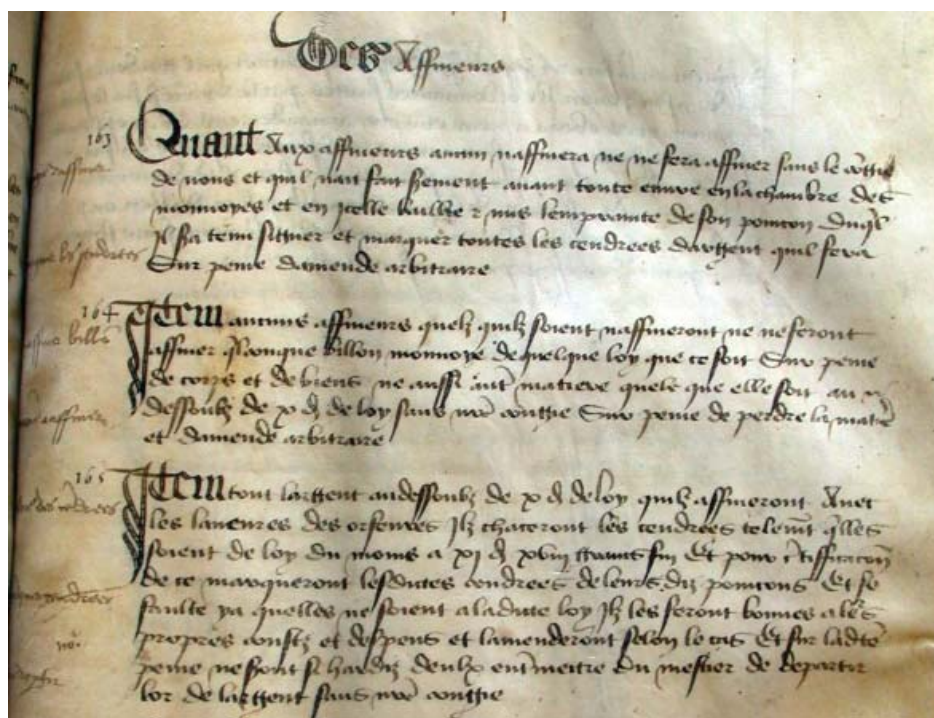 Des Affineurs
163
Quant Aux affineurs aucun naffinera ne ne fera affiner sans le congie
de nous et quil nait fait serment avant toute euvre en la chambre des
monnoyes et en icelle baillie et mis lemprainte de son poincon duql
Il sera tenu signer et marquer toutes les cendrees dargent quil fera
Sur peine damende arbitraire
164
Item aucuns affineurs quelz quilz soient naffineront ne ne feront
affiner qlconque billon monnoye de quelque loy que ce soit Sur peine
de corps et de biens ne aussi aut matiere quele que elle soit au
dessoubz de x d de loy sans nre congie Sur peine de perdre la matie
et damende arbitraire
165
Item tout largent audessoubz de x d de loy quilz affineront Avec
les laveures des orfevres Ilz chaceront les cendrees telemt qlles
soient de loy du moins a xi d xviii grains fin Et pour ctifficacon
de ce marqueront lesdictes cendrees de leurs diz poincons Et se
faulte ya quelles ne soient a ladicte loy Ilz les feront bonnes a lrs
propres coustz et despens et lamenderont selon le cas Et sur ladte
peine ne soient si hardiz deulx entmectre du mestier de departir
lor de largent sans nre congie